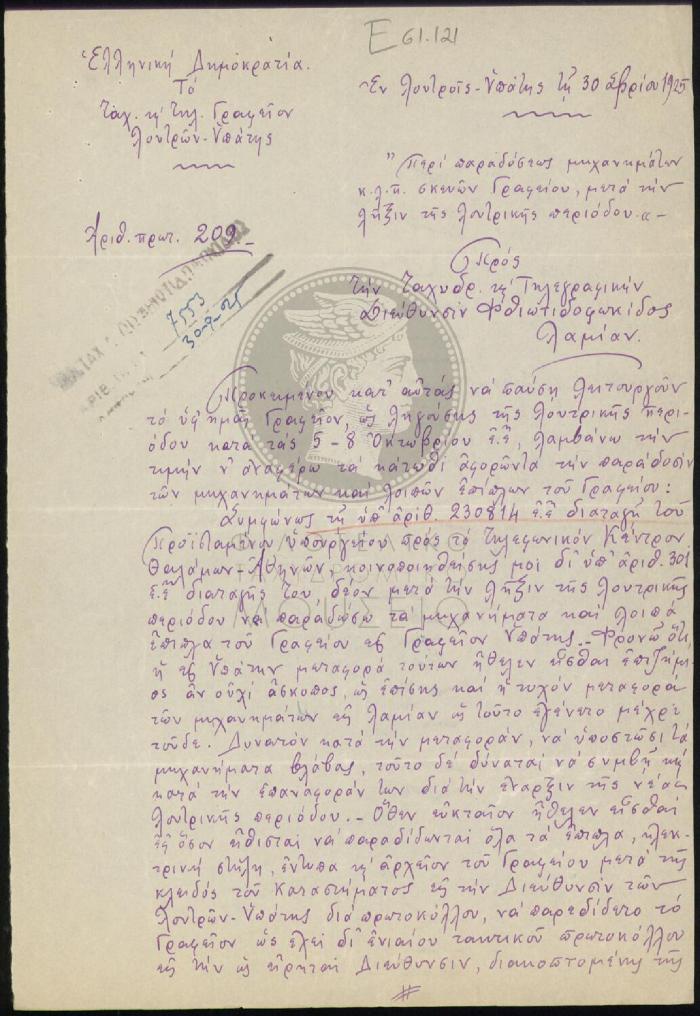 Ε 61.121
Ἑλληνική Δημοκρατία.
Τό
Ταχ. κ' Τηλ. Γραφεῖον
Λουτρῶν-Ὑπάτης
Ἐν Λουτροῖς-Ὑπάτης τῇ 30 7βρίου 1925
"Περί παραδόσεως μηχανημάτων
κ.λ.π. σκευῶν Γραφείου, μετά τήν
λῆξιν τῆς λουτρικῆς περιόδου."-
Ἀριθ. πρωτ. 209-
7553
30-9-25
Πρός
Τήν Ταχυδρ. κ' Τηλεγραφικήν
Διεύθυνσιν Φθιωτιδοφωκίδος
Λαμίαν.
Προκειμένου κατ' αὐτάς νά παύσῃ λειτουργοῦν
τό ὑφ' ἡμᾶς Γραφεῖον, ὡς ληγούσης τῆς λουτρικῆς περι-
όδου κατά τάς 5-8 Ὀκτωβρίου ἐ.ἔ., λαμβάνω τήν
τιμήν ν' ἀναφέρω τά κάτωθι ἀφορῶντα τήν παράδοσιν
τῶν μηχανημάτων καί λοιπῶν ἐπίπλων τοῦ Γραφείου:
Συμφώνως τῇ ὑπ' ἀριθ. 230814 ἐ.ἔ. διαταγῇ τοῦ
Προϊσταμένου Ὑπουργείου πρός τό Τηλεφωνικόν Κέντρον
Θαλάμων-Ἀθηνῶν, κοινοποιηθείσης μοι δι' ὑπ' ἀριθ. 301
ἐ.ἔ. διαταγῆς του, δέον μετά τήν λῆξιν τῆς λουτρικῆς
περιόδου νά παραδώσω τά μηχανήματα καί λοιπά
ἔπιπλα τοῦ Γραφείου εἰς Γραφεῖον Ὑπάτης.- Φρονῶ ὅτι
ἡ εἰς Ὑπάτην μεταφορά τούτων ἤθελεν εἶσθαι ἐπιζήμι-
ος ἄν οὐχί ἄσκοπος, ὡς ἐπίσης καί ἡ τυχόν μεταφορά
τῶν μηχανημάτων εἰς Λαμίαν ὡς τοῦτο ἐγένετο μέχρι
τοῦδε. Δυνατόν κατά τήν μεταφοράν, νά ὑποστῶσι τά
μηχανήματα βλάβας, τοῦτο δέ δύναται νά συμβῇ κ'
κατά τήν ἐπαναφοράν των διά τήν ἔναρξιν τῆς νέας
λουτρικῆς περιόδου.- Ὅθεν εὐκταῖον ἤθελεν εἶσθαι
ἐφ' ὅσον εἴθισται νά παραδίδωνται ὅλα τά ἔπιπλα, ἠλεκ-
τρική στήλη, ἔντυπα κ' ἀρχεῖον τοῦ Γραφείου μετά τῆς
κλειδός τοῦ Καταστήματος εἰς τήν Διεύθυνσιν τῶν
Λουτρῶν-Ὑπάτης διά πρωτοκόλλου, νά παρεδίδετο τό
Γραφεῖον ὡς ἔχει δι' ἑνιαίου τακτικοῦ πρωτοκόλλου
εἰς τήν ὡς εἴρηται Διεύθυνσιν, διακοπτομένης τῆς